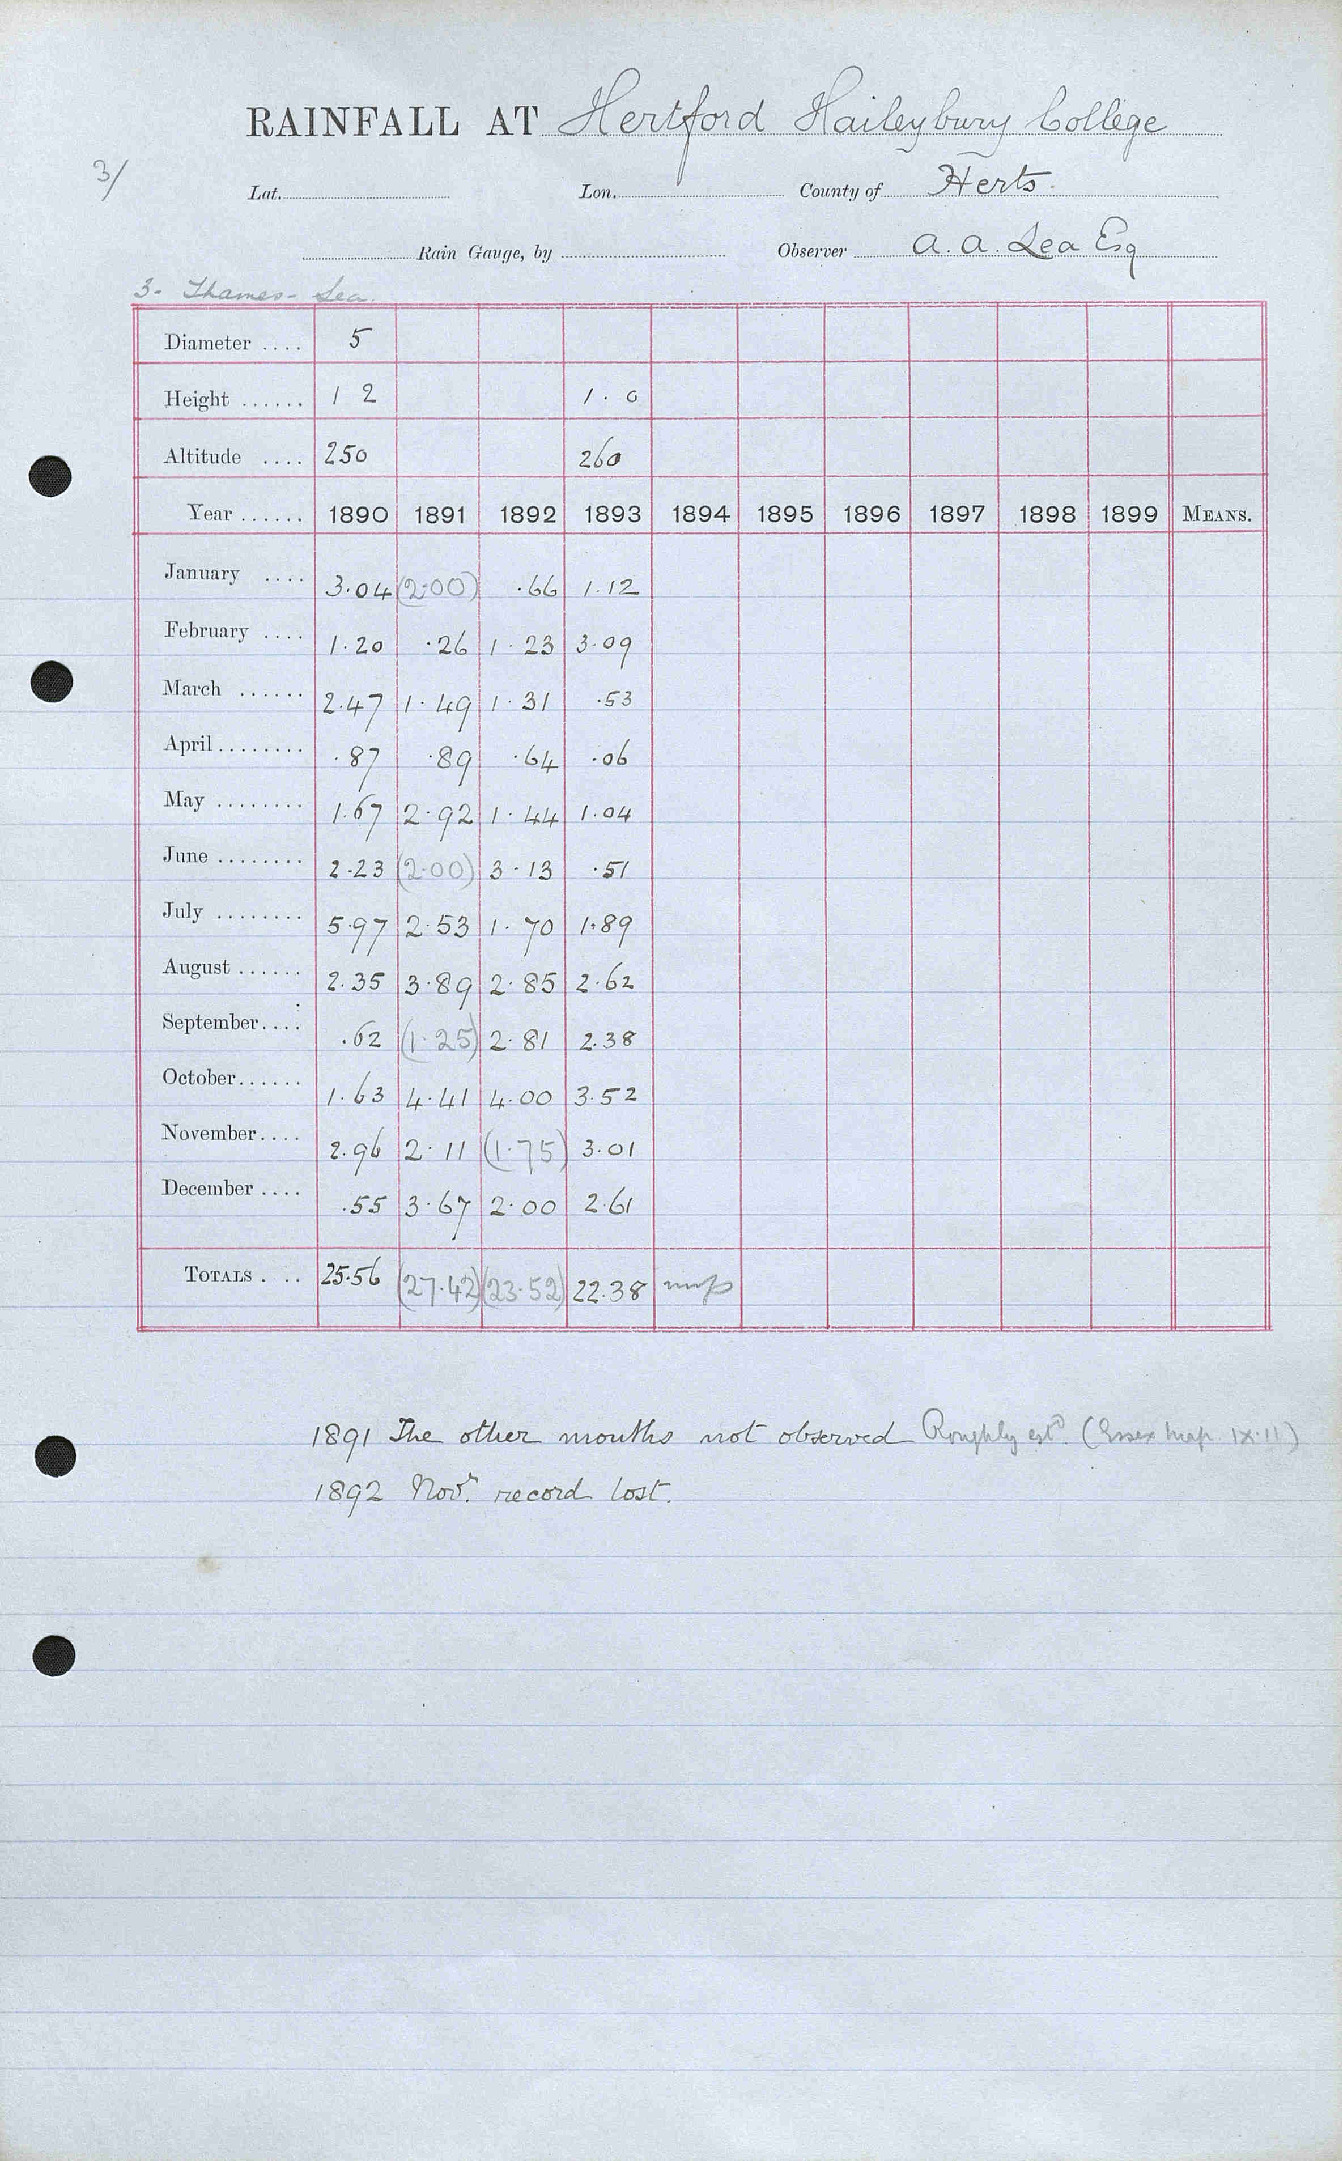 RAINFALL AT Hertford Haileybury College
3/
Lat. Lon. County of Herts.
Rain Gauge, by Observer A. A. Lea Esq
3- Thames - Lea.
Diameter .... 5
Height ...... 1 2 1 . 0
Altitude .... 250 260
Year ...... 1890 1891 1892 1893 1894 1895 1896 1897 1898 1899 MEANS.
January .... 3.04 (2.00) .66 1.12
February .... 1.20 .26 1.23 3.09
March ...... 2.47 1.49 1.31 .53
April ........ .87 .89 .64 .06
May ........ 1.67 2.92 1.44 1.04
June ........ 2.23 (2.00) 3.13 .51
July ........ 5.97 2.53 1.70 1.89
August ...... 2.35 3.89 2.85 2.62
September.... .62 (1.25) 2.81 2.38
October...... 1.63 4.41 4.00 3.52
November.... 2.96 2.11 (1.75) 3.01
December .... .55 3.67 2.00 2.61
TOTALS . .. 25.56 (27.42) (23.52) 22.38
1891 The other months not observed Roughly estd. (Essex map. IX.11)
1892 Novr. record lost.